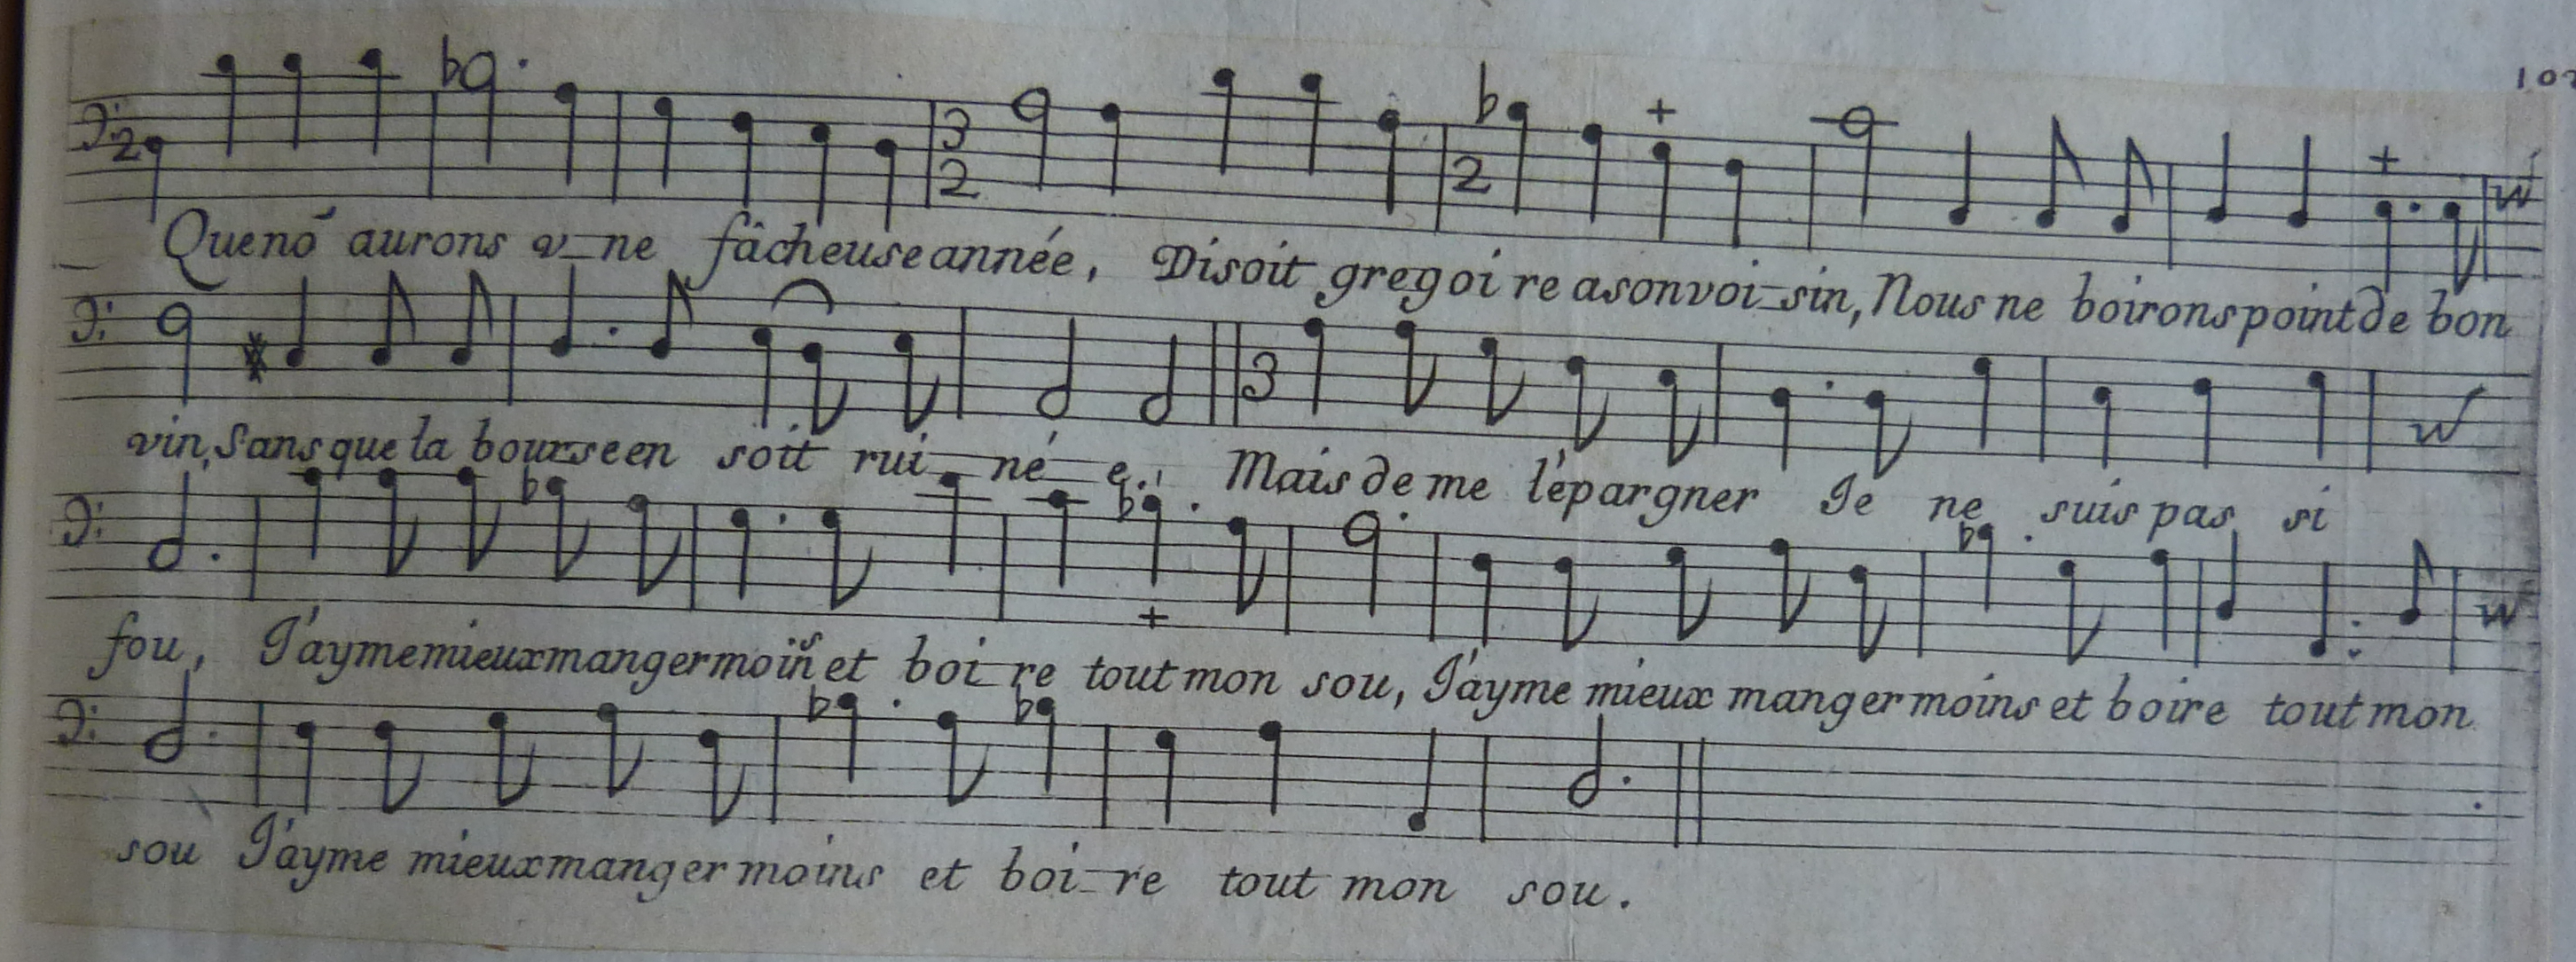 107
Que nõ aurons v_ne fâcheuse année, Disoit gregoire a son voi_sin, Nous ne boirons point de bon
vin, Sans que la bourse en soit rui_né_e. Mais de me l'épargner Je ne suis pas si
fou, J'ayme mieux manger moins et boi_re tout mon sou, J'ayme mieux manger moins et boire tout mon
sou J'ayme mieux manger moins et boi_re tout mon sou.